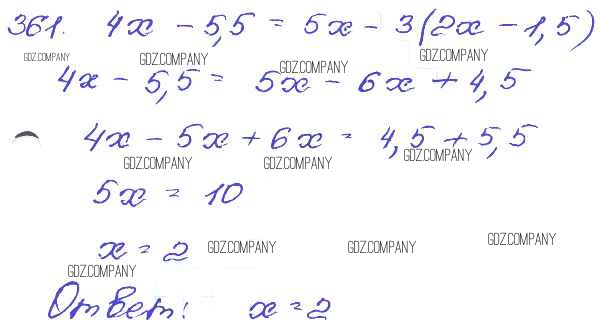 361. 4x - 5,5 = 5x - 3(2x - 1,5)
GDZ.COMPANY GDZ.COMPANY GDZ.COMPANY GDZ.COMPANY
4x - 5,5 = 5x - 6x + 4,5
4x - 5x + 6x = 4,5 + 5,5
GDZ.COMPANY GDZ.COMPANY GDZ.COMPANY
5x = 10
x = 2
GDZ.COMPANY GDZ.COMPANY GDZ.COMPANY GDZ.COMPANY
Ответ: x = 2